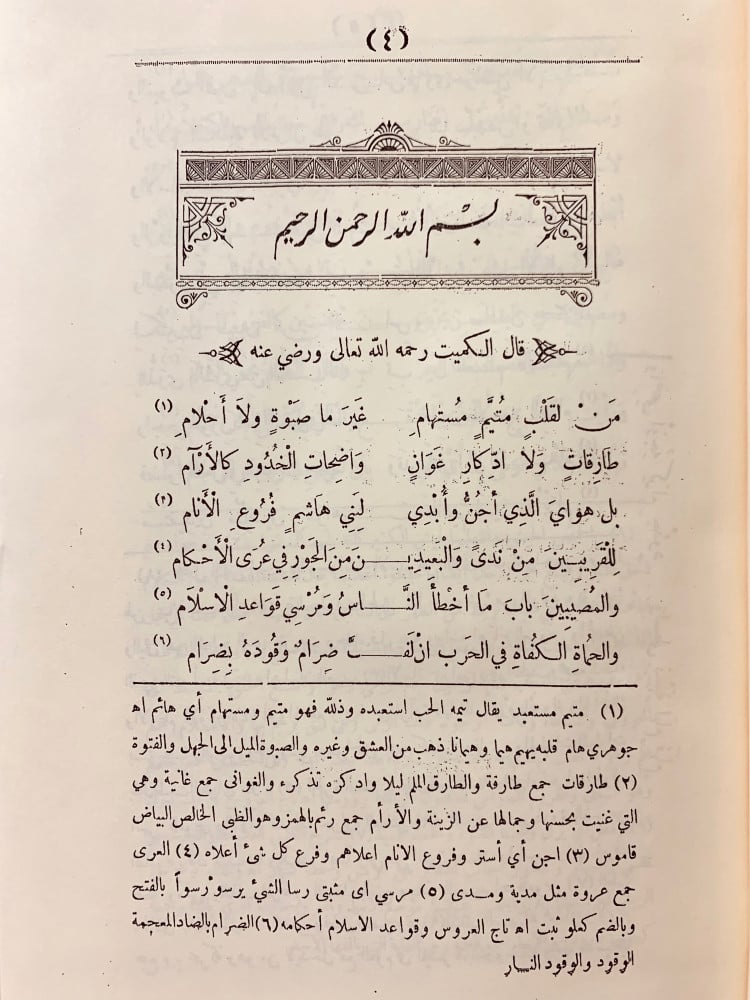 (٤)
بسم الله الرحمن الرحيم
قال الكميت رحمه الله تعالى ورضي عنه
مَنْ لقَلْبٍ مُتَيَّمٍ مُستهامِ غَيرَ ما صَبْوَةٍ ولاَ أَحْلامِ (١)
طارِقاتٍ وَلا ادّكارِ غَوَانٍ وَاضِحاتِ الْخُدُودِ كالأَرْآم (٢)
بل هوايَ الَّذِي أجُنُّ وأُبْدِي لِبَنِي هاَشمٍ فُرُوعِ الْأَنام (٣)
لِلْقَرِيبِينَ مِنْ نَدىً وَالْبَعِيدِيـــنَ مِنَ الجَوْرِ فِي عُرَى الْأَحْكام (٤)
والمُصيبِينَ بابَ مَا أخْطأَ النَّـــاسُ وَمُرْسِي قَوَاعدِ الْاسْلاَم (٥)
والحُماةِ الكُفاةِ في الحَرب انْ لَفَـــتَّ ضِرَامٌ وَقُودَهُ بِضِرَام (٦)
(١) متيم مستعبد يقال تيمه الحب استعبده وذلله فهو متيم ومستهام أي هائم اه
جوهري هام قلبه يهيم هيما وهيمانا ذهب من العشق وغيره والصبوة الميل الى الجهل والفتوة
(٢) طارقات جمع طارقة والطارق الملم ليلا وادكره تذكره والغوانى جمع غانية وهي
التي غنيت بحسنها وجمالها عن الزينة والأرأم جمع رئم بالهمز وهو الظبي الخالص البياض
قاموس (٣) اجن أي أستر وفروع الانام اعلاهم وفرع كل شئ أعلاه (٤) العرى
جمع عروة مثل مدية ومدى (٥) مرسي اى مثبتى رسا الشئ يرسو رسواً بالفتح
وبالضم كعلو ثبت اه تاج العروس وقواعد الاسلام أحكامه (٦) الضرام بالضاد المعجمة
الوقود والوقود النار